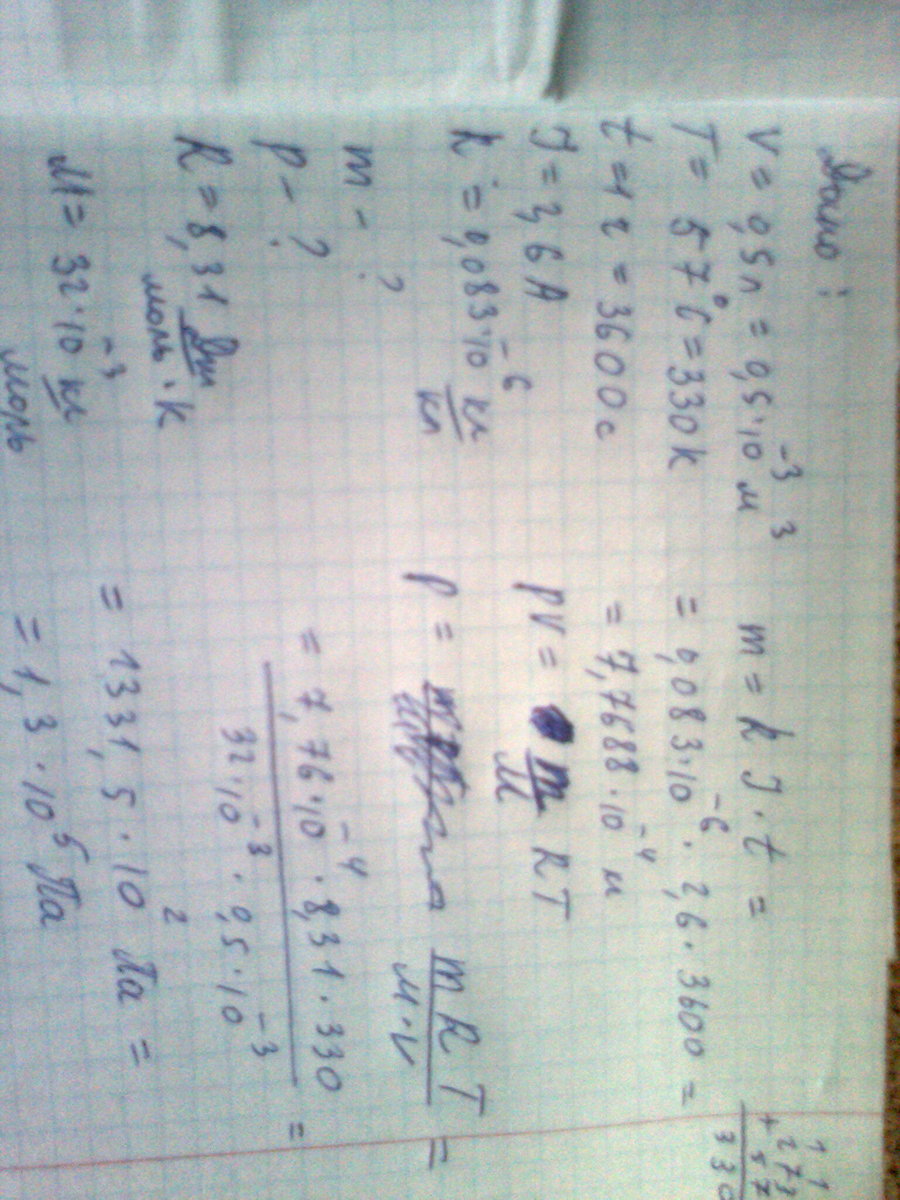 Дано:
V = 0,5л = 0,5·10⁻³ м³
T = 57°C = 330K
t = 1 ч = 3600 с
J = 2,6 A
k = 0,083·10⁻⁶ кг/Кл
m - ?
p - ?
R = 8,31 Дж/моль·К
M = 32·10⁻³ кг/моль
m = k J·t =
= 0,083·10⁻⁶ · 2,6 · 3600 =
= 7,7688·10⁻⁴ м
pV = m/M RT
p = m R T / M·V =
= 7,76·10⁻⁴ · 8,31 · 330 / 32·10⁻³ · 0,5·10⁻³ =
= 1331,5 · 10² Па =
= 1,3 · 10⁵ Па
1 1
273
+ 57
330